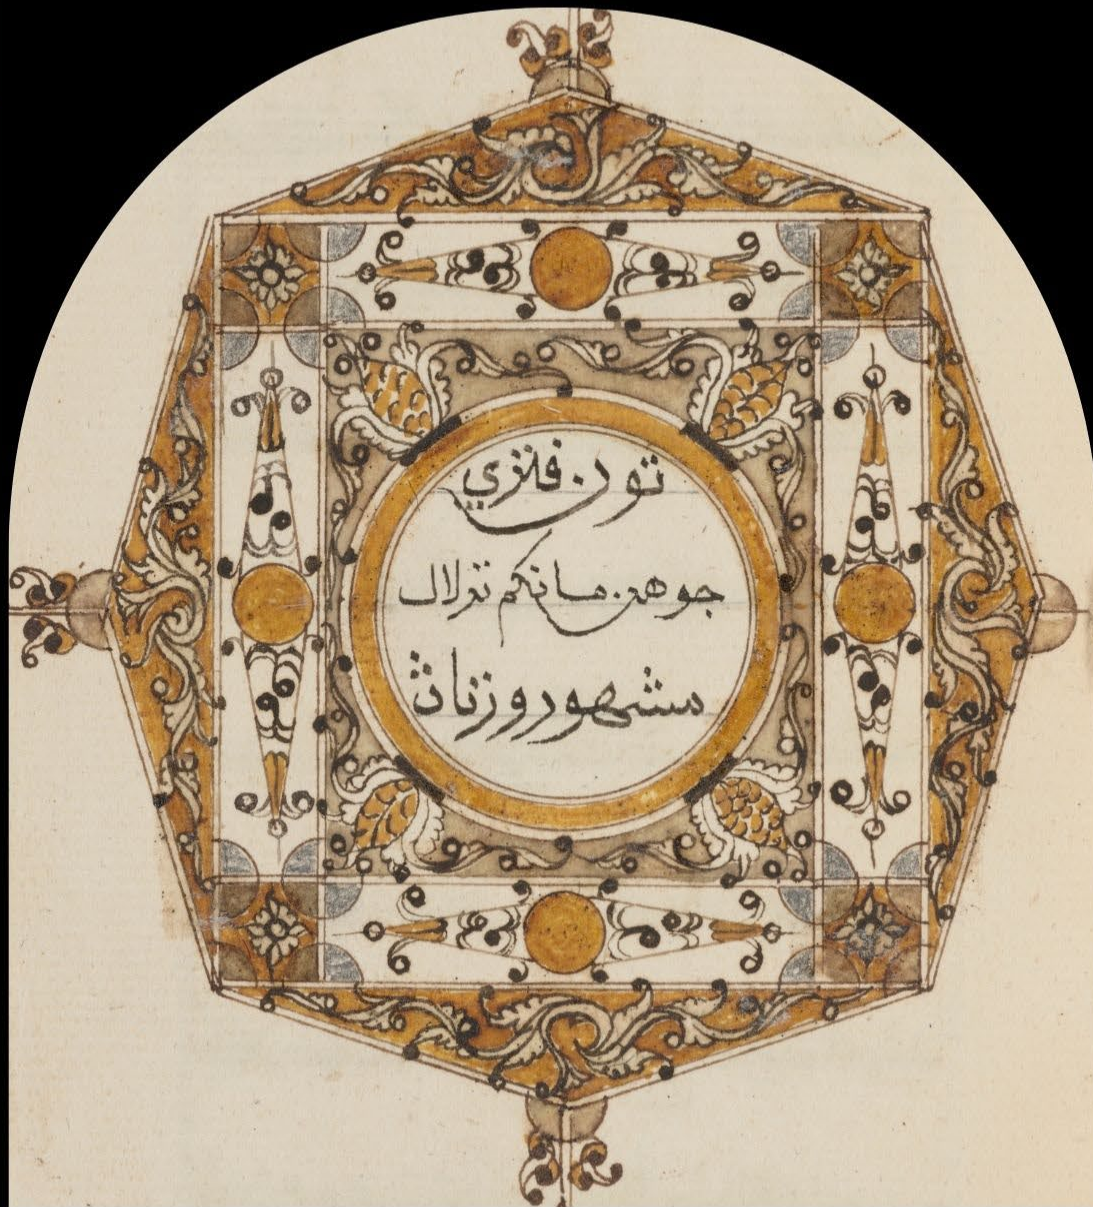 تون فتري
جوهر مانكم ترلال
مشهور ورتاڽ